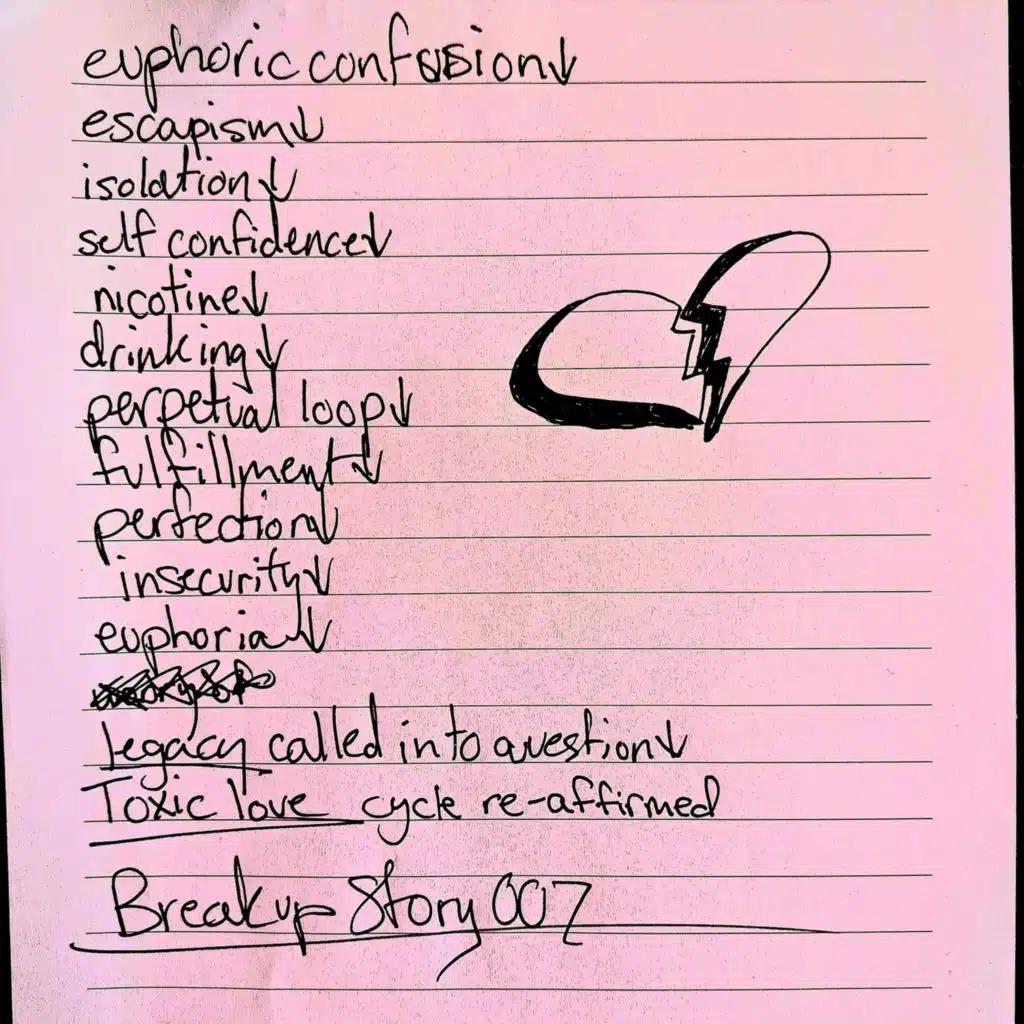 euphoric confusion↓
escapism↓
isolation↓
self confidence↓
nicotine↓
drinking↓
perpetual loop↓
fulfillment↓
perfection↓
insecurity↓
euphoria↓
legacy called into question↓
Toxic love cycle re-affirmed
Breakup Story 007